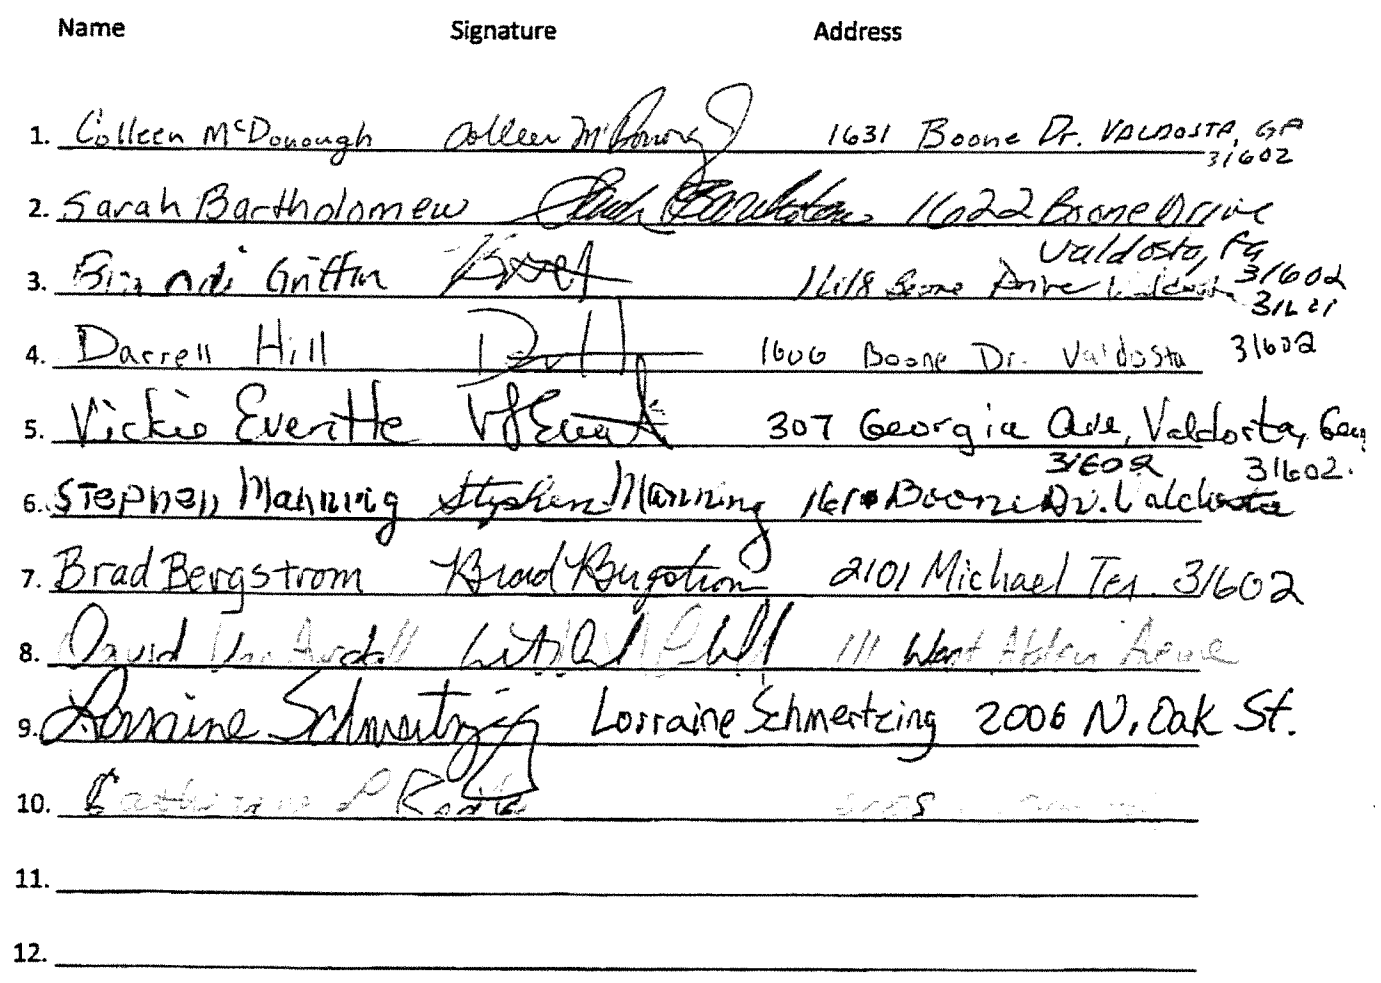 Name Signature Address
1. Colleen McDonough Colleen McDonough 1631 Boone Dr. VALDOSTA, GA
31602
2. Sarah Bartholomew 1622 Boone Drive
Valdosta, GA
31602
3. Brandi Griffin 1618 Boone Drive
4. Darrell Hill 1606 Boone Dr. Valdosta 31602
5. Vickie Everitte 307 Georgia Ave, Valdosta,
31602 31602.
6. Stephen Manning Stephen Manning Boone Dr. Valdosta
7. Brad Bergstrom Brad Bergstrom 2101 Michael Ter. 31602
8. David 111 West
9. Lorraine Schmertzing Lorraine Schmertzing 2006 N. Oak St.
10. Catherine P
11.
12.